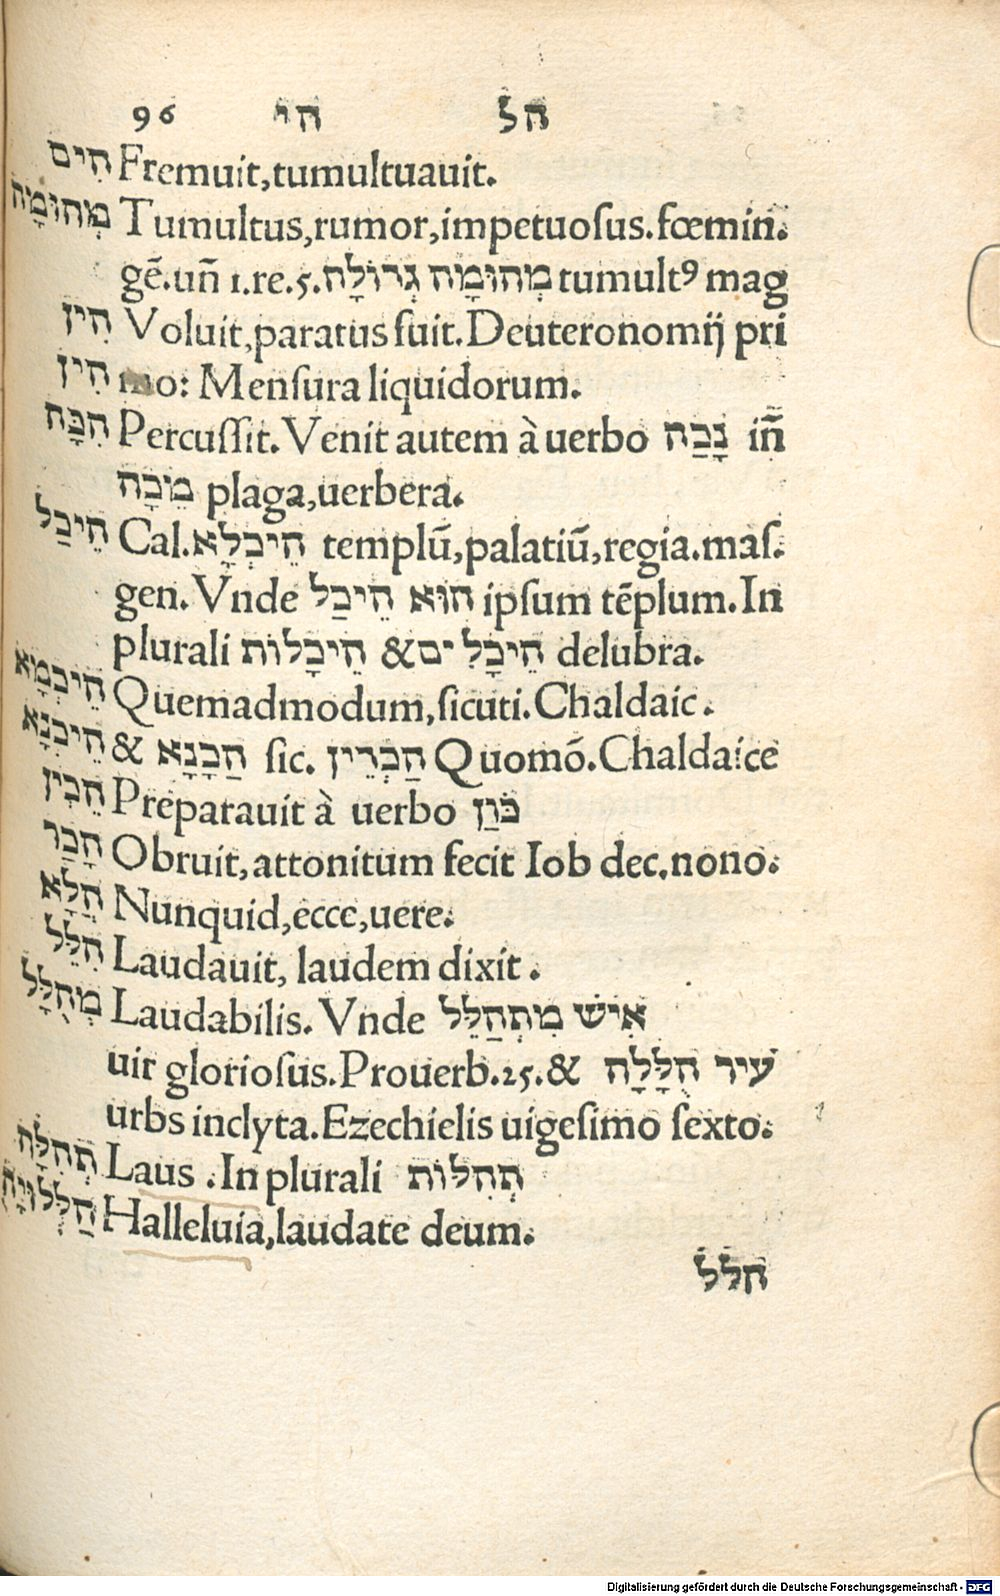 96 הי הל
הִים Fremuit,tumultuauit.
מְהוּמָה Tumultus,rumor,impetuoſus.fœmin̄.
gẽ.un̄ 1.re.5.מְהוּמָה גְדוֹלָה tumultꝰ mag
הִין Voluit,paratus fuit.Deuteronomij pri
הִין mo: Menſura liquidorum.
הִכָּה Percuſſit. Venit autem à uerbo נָכַה in̄
מַכָּה plaga,uerbera.
הֵיכַל Cal.הֵיכְלָא templũ,palatiũ,regia.maſ.
gen. Vnde הוּא הֵיכַל ipſum tẽplum.In
plurali הֵיכָלוֹת & הֵיכָלִים delubra.
הֵיכְמָא Quemadmodum,ſicuti.Chaldaic.
הֵיכְנָא & הַכָנָא ſic. הַכְדֵין Quomõ.Chaldaice
הֵכִין Preparauit à uerbo כּוּן
הָכַר Obruit,attonitum fecit Iob dec.nono.
הֲלָא Nunquid,ecce,uere.
הִלֵּל Laudauit, laudem dixit.
מְהֻלָּל Laudabilis. Vnde אִישׁ מִתְהַלֵּל
uir glorioſus.Prouerb.25.& עִיר הֻלָּלָה
urbs inclyta.Ezechielis uigeſimo ſexto.
תְהִלָּה Laus .In plurali תְהִלּוֹת
הַלְּלוּיָהּ Halleluia,laudate deum.
הלל
Digitalisierung gefördert durch die Deutsche Forschungsgemeinschaft - DFG